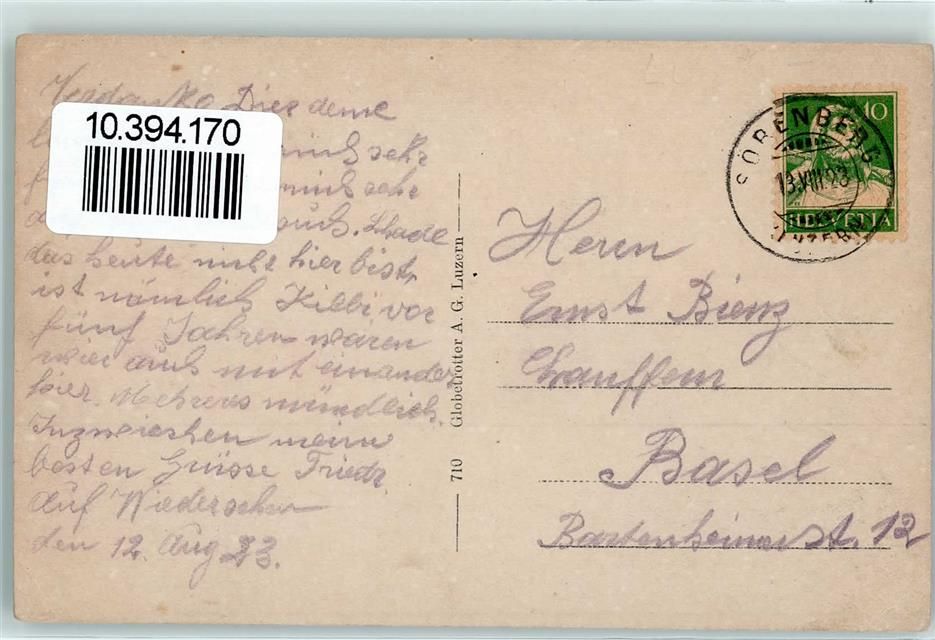 Verdanke Dir deine
mich sehr
mich sehr
auch. Schade
das heute nicht hier bist,
ist nämlich Kilbi vor
fünf Jahren waren
wier auch mit einander
hier. Mehrers mündlich.
Inzwieschen meine
besten Grüsse Friedr.
Auf Wiedersehen
den 12. Aug 23.
10.394.170
710 Globetrotter A. G. Luzern
SÖRENBERG
13.VIII.23
(LUZERN)
10
HELVETIA
Herrn
Ernst Bienz
Basel
Bartenheimerst. 12